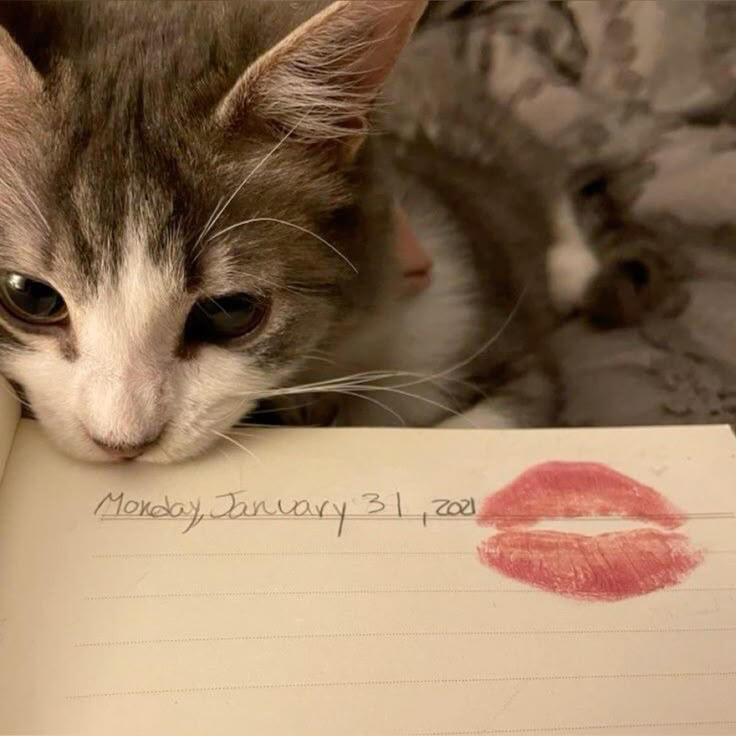 Monday, January 31, 2021